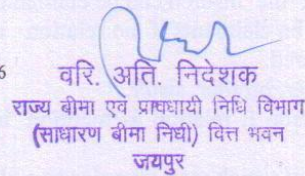 6
वरि. अति. निदेशक
राज्य बीमा एवं प्रावधायी निधि विभाग
(साधारण बीमा निधी) वित्त भवन
जयपुर